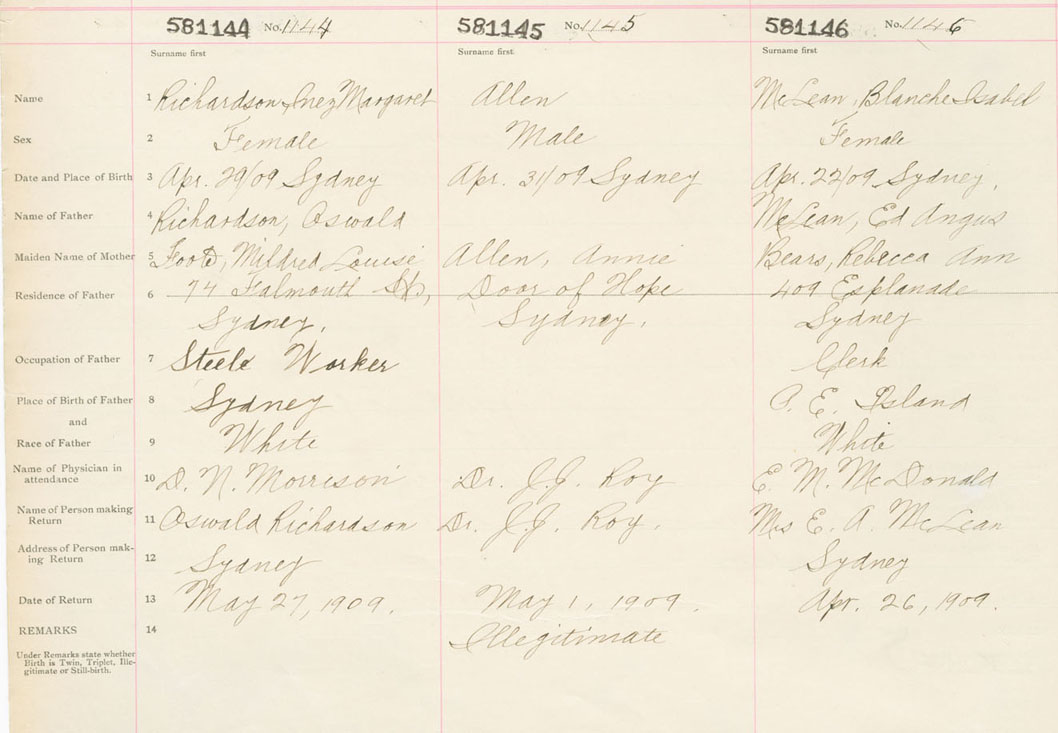 581144 No. 1144 581145 No. 1145 581146 No. 1146
Surname first Surname first Surname first
Name 1 Richardson, Inez Margaret Allen McLean, Blanche Isabel
Sex 2 Female Male Female
Date and Place of Birth 3 Apr. 29/09 Sydney Apr. 31/09 Sydney Apr. 22/09 Sydney,
Name of Father 4 Richardson, Oswald McLean, Ed Angus
Maiden Name of Mother 5 Foote, Mildred Louise Allen, Annie Bears, Rebecca Ann
Residence of Father 6 74 Falmouth St, Door of Hope 409 Esplanade
Sydney. Sydney. Sydney
Occupation of Father 7 Steele Worker Clerk
Place of Birth of Father 8 Sydney P. E. Island
and
Race of Father 9 White White
Name of Physician in
attendance 10 D. N. Morrison Dr. J.J. Roy E. M. McDonald
Name of Person making
Return 11 Oswald Richardson Dr. J.J. Roy. Mrs E. A. McLean
Address of Person mak-
ing Return 12 Sydney Sydney
Date of Return 13 May 27, 1909. May 1, 1909. Apr. 26, 1909.
REMARKS 14 Illegitimate
Under Remarks state whether
Birth is Twin, Triplet, Ille-
gitimate or Still-birth.